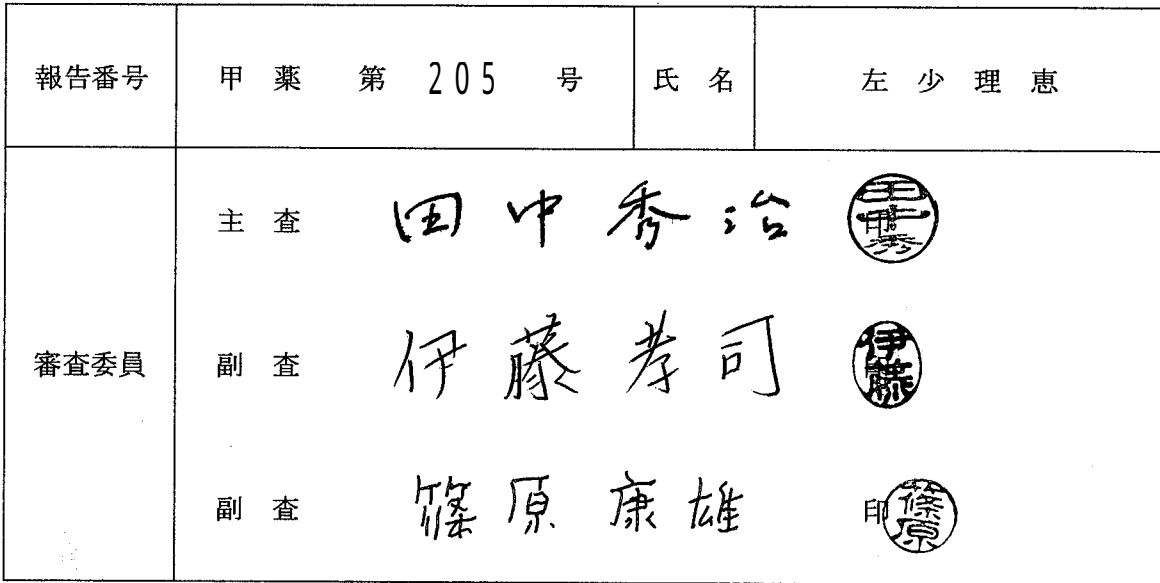 報告番号 甲 薬 第 205 号 氏 名 左 少 理 恵
主 査 田 中 秀 治
審査委員 副 査 伊 藤 孝 司 伊藤
副 査 篠 原 康 雄 印 篠原